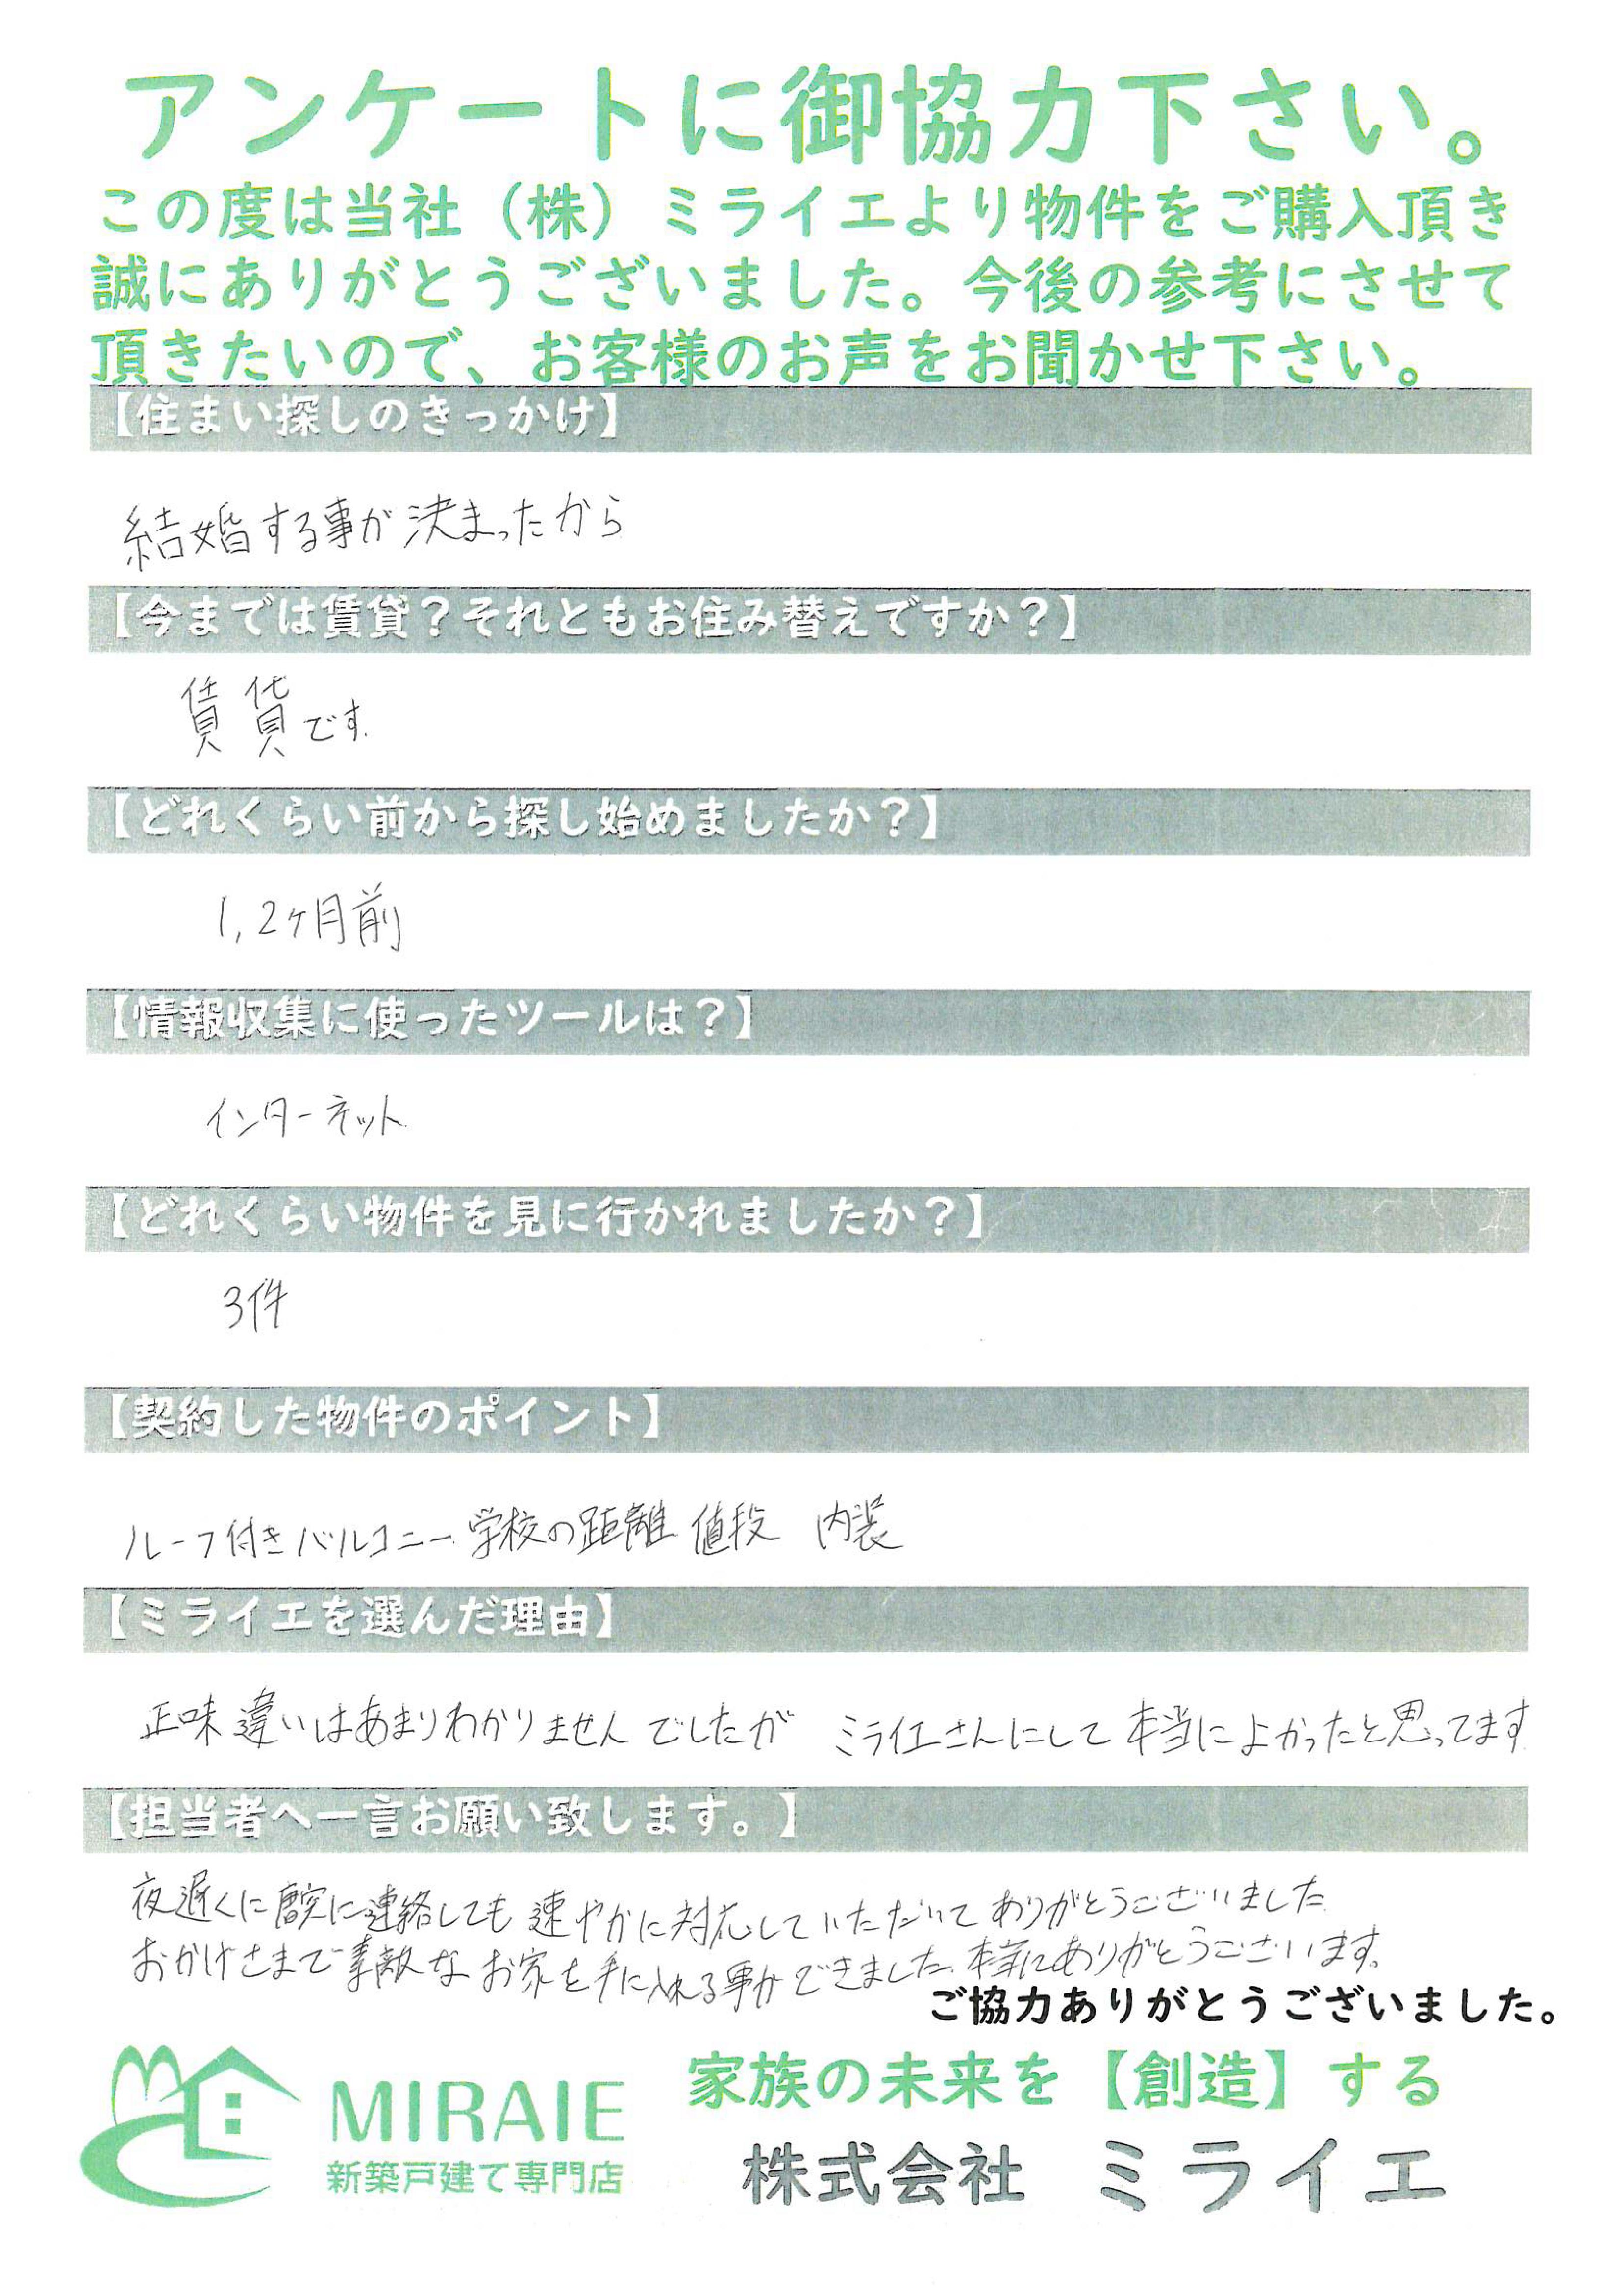 アンケートに御協力下さい。
この度は当社（株）ミライエより物件をご購入頂き
誠にありがとうございました。今後の参考にさせて
頂きたいので、お客様のお声をお聞かせ下さい。
【住まい探しのきっかけ】
結婚する事が決まったから
【今までは賃貸？それともお住み替えですか？】
賃貸です。
【どれくらい前から探し始めましたか？】
1,2ヶ月前
【情報収集に使ったツールは？】
インターネット
【どれくらい物件を見に行かれましたか？】
3件
【契約した物件のポイント】
ルーフ付きバルコニー 学校の距離 値段 内装
【ミライエを選んだ理由】
正味違いはあまりわかりませんでしたが ミライエさんにして本当によかったと思ってます
【担当者へ一言お願い致します。】
夜遅くに に連絡しても速やかに対応していただいてありがとうございました
おかげさまで素敵なお家を手に入れる事ができました。本当にありがとうございます。
ご協力ありがとうございました。
MIRAIE
新築戸建て専門店
家族の未来を【創造】する
株式会社 ミライエ